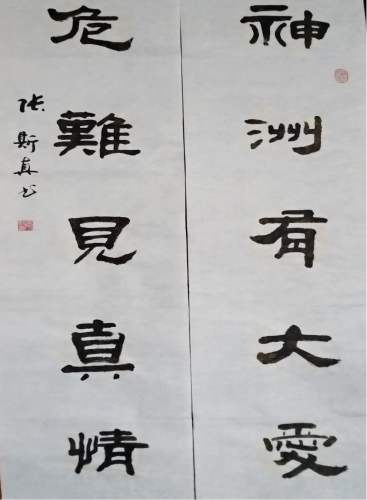 神洲有大愛
危難見真情
张斯真书